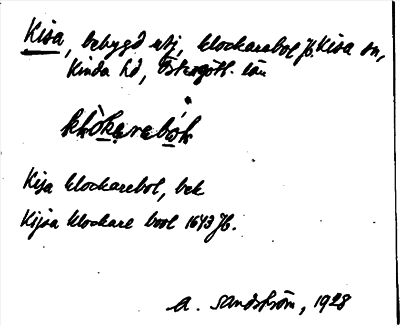 Kisa, bebygd utj, klockarebol Jb. Kisa sn,
Kinda hd, Östergötl. län
klòkarebo̩k
Kisa klockarebol, bek
Kijsa klockare bool 1643 Jb.
A. Sandström, 1928